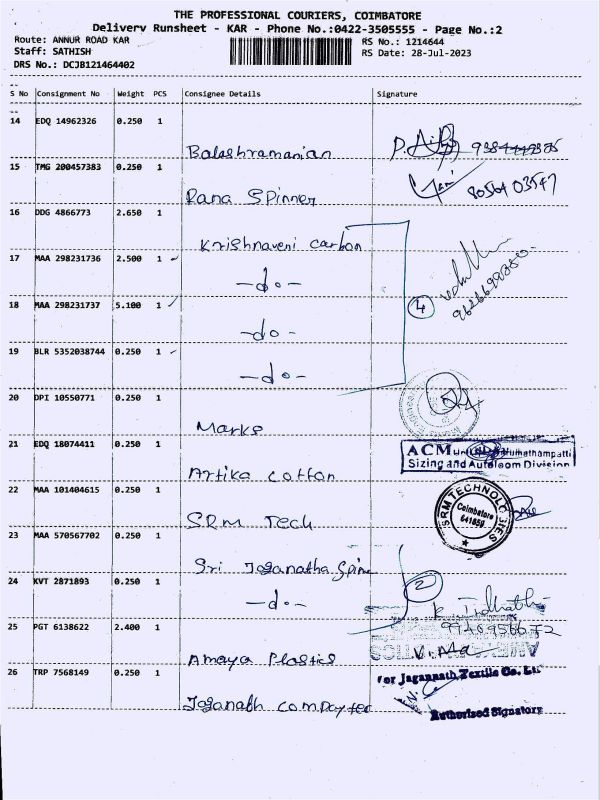 THE PROFESSIONAL COURIERS, COIMBATORE
Delivery Runsheet - KAR - Phone No.:0422-3505555 - Page No.:2
Route: ANNUR ROAD KAR
RS No.: 1214644
Staff: SATHISH
RS Date: 28-Jul-2023
DRS No.: DCJB121464402
S No Consignment No Weight PCS Consignee Details Signature
14 EDQ 14962326 0.250 1
Balashramanian
15 TMG 200457383 0.250 1
8056403547
Rana Spinner
16 DDG 4866773 2.650 1
Krishnaveni Carbon
17 MAA 298231736 2.500 1
-do-
4
18 MAA 298231737 5.100 1
-do-
19 BLR 5352038744 0.250 1
-do-
20 DPI 10550771 0.250 1
Marks
21 EDQ 18074411 0.250 1
ACM Muthathampatti
Sizing and Autoloom Division
Artika Cotton
22 MAA 101404615 0.250 1
SRM TECHNOLOGIES
Coimbatore
641659
SRM Tech
23 MAA 570567702 0.250 1
Sri Jaganatha Spinn
24 KVT 2871893 0.250 1
2
-do-
25 PGT 6138622 2.400 1
Amaya Plastics
26 TRP 7568149 0.250 1
For Jagannath Textile Co. Ltd
Jaganath Compayter
Authorised Signatory